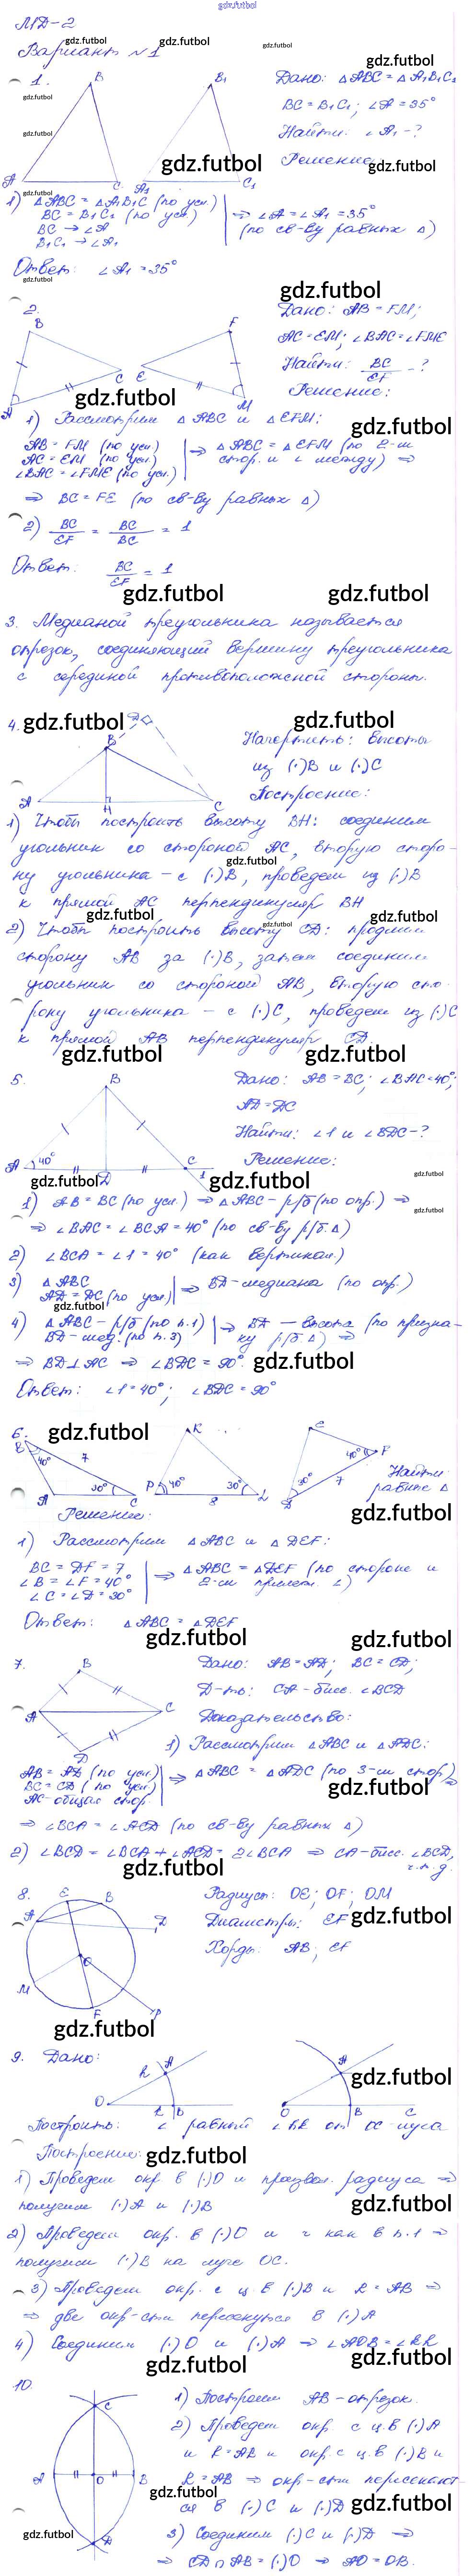 gdz.futbol
МД-2
Вариант №1
1.
Дано: △ABC = △A₁B₁C₁
BC = B₁C₁; ∠A = 35°
Найти: ∠A₁ - ?
Решение:
1) △ABC = △A₁B₁C (по усл.)
BC = B₁C₁ (по усл)
BC → ∠A
B₁C₁ → ∠A₁
⇒ ∠A = ∠A₁ = 35°
(по св-ву равных △)
Ответ: ∠A₁ = 35°
2.
Дано: AB = FM;
AC = EM; ∠BAC = ∠FME
Найти: BC/EF - ?
Решение:
1) Рассмотрим △ABC и △EFM:
AB = FM (по усл.)
AC = EM (по усл.)
∠BAC = ∠FME (по усл.)
⇒ △ABC = △EFM (по 2-м
стор. и ∠ между) ⇒
⇒ BC = FE (по св-ву равных △)
2) BC/EF = BC/BC = 1
Ответ: BC/EF = 1
3. Медианой треугольника называется
отрезок, соединяющий вершину треугольника
с серединой противоположной стороны.
4.
Начертить: высоты
из (·)B и (·)C
Построение:
1) Чтобы построить высоту BH: соединим
угольник со стороной AC, вторую сторо-
ну угольника - с (·)B, проведем из (·)B
к прямой AC перпендикуляр BH
2) Чтобы построить высоту CD: продлим
сторону AB за (·)B, затем соединим
угольник со стороной AB, вторую сто-
рону угольника - с (·)C, проведем из (·)C
к прямой AB перпендикуляр CD.
5.
Дано: AB = BC; ∠BAC = 40°;
AD = DC
Найти: ∠1 и ∠BDC - ?
Решение:
1) AB = BC (по усл.) ⇒ △ABC - р/б (по опр.) ⇒
⇒ ∠BAC = ∠BCA = 40° (по св-ву р/б △)
2) ∠BCA = ∠1 = 40° (как вертикал.)
3) △ABC
AD = DC (по усл)
⇒ BD - медиана (по опр.)
4) △ABC - р/б (по п.1)
BD - мед. (по п.3)
⇒ BD - высота (по призна-
ку р/б △) ⇒
⇒ BD ⊥ AC ⇒ ∠BDC = 90°
Ответ: ∠1 = 40°; ∠BDC = 90°
6.
Найти:
равные △
Решение:
1) Рассмотрим △ABC и △DEF:
BC = DF = 7
∠B = ∠F = 40°
∠C = ∠D = 30°
⇒ △ABC = △DEF (по стороне и
2-м прилеж. ∠)
Ответ: △ABC = △DEF
7.
Дано: AB = AD; BC = CD;
Д-ть: CA - бисс. ∠BCD
Доказательство:
1) Рассмотрим △ABC и △ADC:
AB = AD (по усл)
BC = CD (по усл)
AC - общая стор.
⇒ △ABC = △ADC (по 3-м стор) ⇒
⇒ ∠BCA = ∠ACD (по св-ву равных △)
2) ∠BCD = ∠BCA + ∠ACD = 2∠BCA ⇒ CA - бисс. ∠BCD,
ч.т.д.
8.
Радиусы: OE; OF; OM
Диаметры: EF
Хорды: AB; EF
9. Дано:
Построить: ∠ равный ∠hk от OC - луча
Построение:
1) Проведем окр в (·)O и произвол. радиуса ⇒
получим (·)A и (·)B
2) Проведем окр. в (·)O и r как в п.1 ⇒
получим (·)B на луче OC.
3) Проведем окр. с ц. в (·)B и R = AB ⇒
⇒ две окр-сти пересекутся в (·)A
4) Соединим (·)O и (·)A ⇒ ∠AOB = ∠hk
10.
1) Построим AB - отрезок.
2) Проведем окр с ц. в (·)A
и R = AB и окр. с ц. в (·)B и
R = AB ⇒ окр-сти пересекают-
ся в (·)C и (·)D
3) Соединим (·)C и (·)D ⇒
⇒ CD ∩ AB = (·)O ⇒ AO = OB.